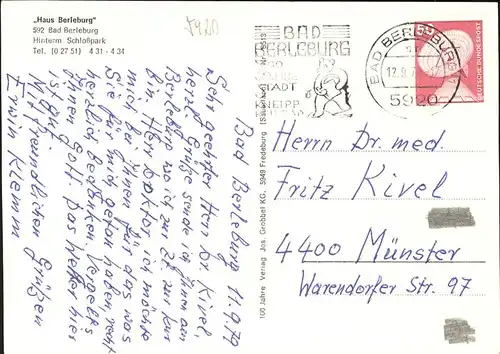 "Haus Berleburg"
592 Bad Berleburg
Hinterm Schloßpark
Tel. (0 27 51) 4 31 - 4 34
5920
BAD
BERLEBURG
STADT
KNEIPP
BAD BERLEBURG
12.9.7
5920
DEUTSCHE BUNDESPOST
Bad Berleburg 11.9.79
Sehr geehrter Herr Dr. Kivel
herzl. Grüße sende ich Ihnen aus
Berleburg wo ich zur Zt. zur Kur
bin. Herr Doktor, ich möchte
mich bei Ihnen für das was
Sie für mich getan haben, recht
herzlich bedanken. Vergelt's
Ihnen Gott. Das Wetter hier
ist gut.
Mit freundlichen Grüßen
Erwin Klemm
100 Jahre Verlag Jos. Grobbel KG., 5949 Fredeburg
Herrn Dr. med.
Fritz Kivel
4400 Münster
Warendorfer Str. 97